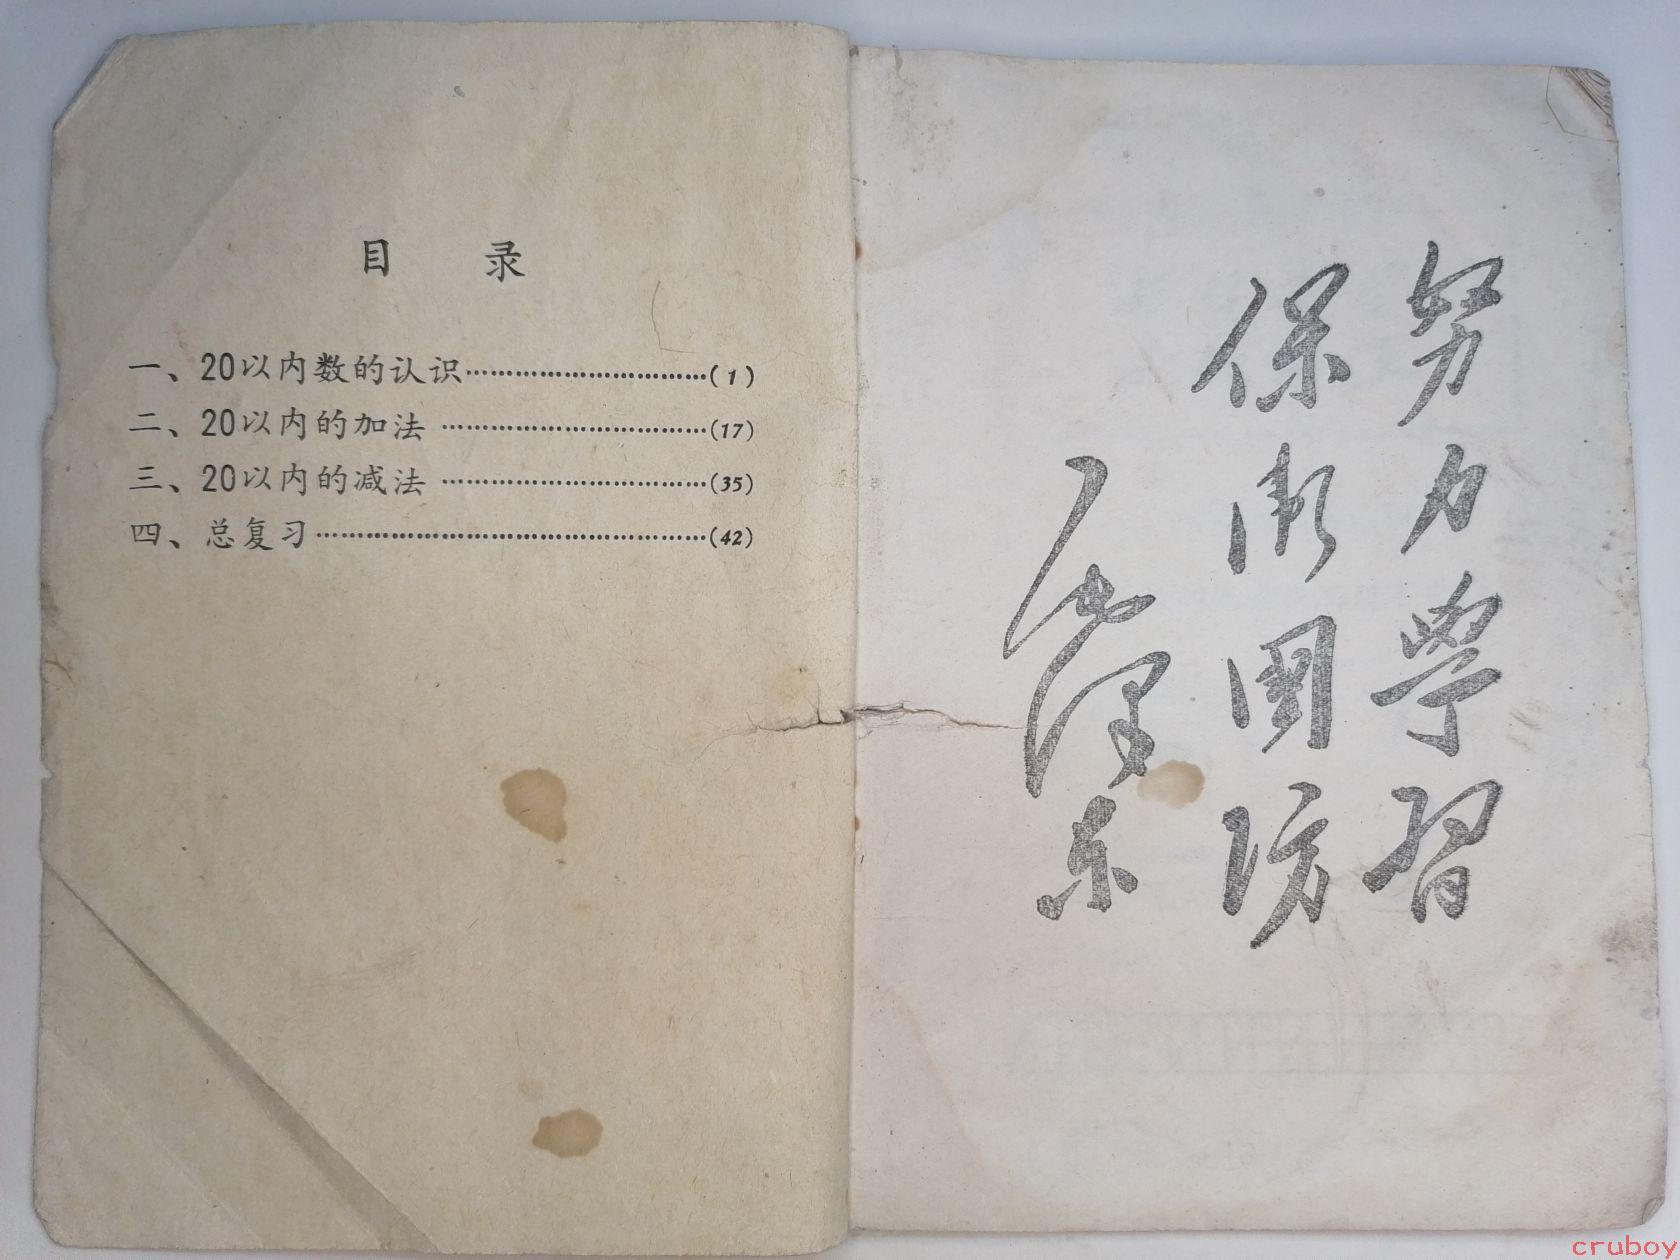 目 录
一、20以内数的认识……………………………(1)
二、20以内的加法……………………………(17)
三、20以内的减法……………………………(35)
四、总复习……………………………………(42)
努力学習
保衛國防
毛泽东
cruboy